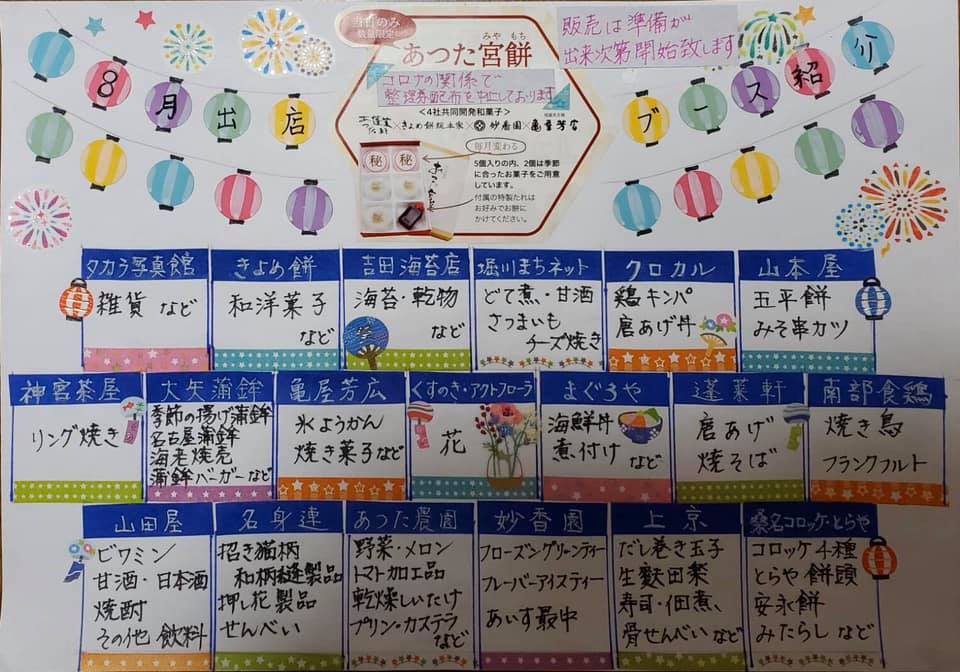 8月出店
ブース紹介
当日のみ
数量限定
みやもち
あつた宮餅
コロナの関係で
整理券配布を中止しております
<4社共同開発和菓子>
×きよめ餅総本家×妙香園×亀屋芳広
毎月変わる
5個入りの内、2個は季節
に合ったお菓子をご用意
しています。
付属の特製たれは
お好みでお餅に
かけてください。
秘 秘
販売は準備が
出来次第開始致します
タカラ写真館
雑貨 など
きよめ餅
和洋菓子
など
吉田海苔店
海苔・乾物
など
堀川まちネット
どて煮・甘酒
さつまいも
チーズ焼き
クロカル
鶏キンパ
唐あげ丼
山本屋
五平餅
みそ串カツ
神宮茶屋
リング焼き
大矢蒲鉾
季節の揚げ蒲鉾
名古屋蒲鉾
海老焼売
蒲鉾バーガーなど
亀屋芳広
氷ようかん
焼き菓子など
くすのき・アクトフローラ
花
まぐろや
海鮮丼
煮付け など
蓬莱軒
唐あげ
焼そば
南部食鶏
焼き鳥
フランクフルト
山田屋
ビワミン
甘酒・日本酒
焼酎
その他 飲料
名身連
招き猫柄
和柄縫製品
押し花製品
せんべい
あつた農園
野菜・メロン
トマト加工品
乾燥しいたけ
プリン・カステラ
など
妙香園
フローズングリーンティー
フレーバーアイスティー
あいす最中
上京
だし巻き玉子
生麩田楽
寿司・佃煮、
骨せんべいなど
桑名コロッケ・とらや
コロッケ4種
とらや饅頭
安永餅
みたらし など